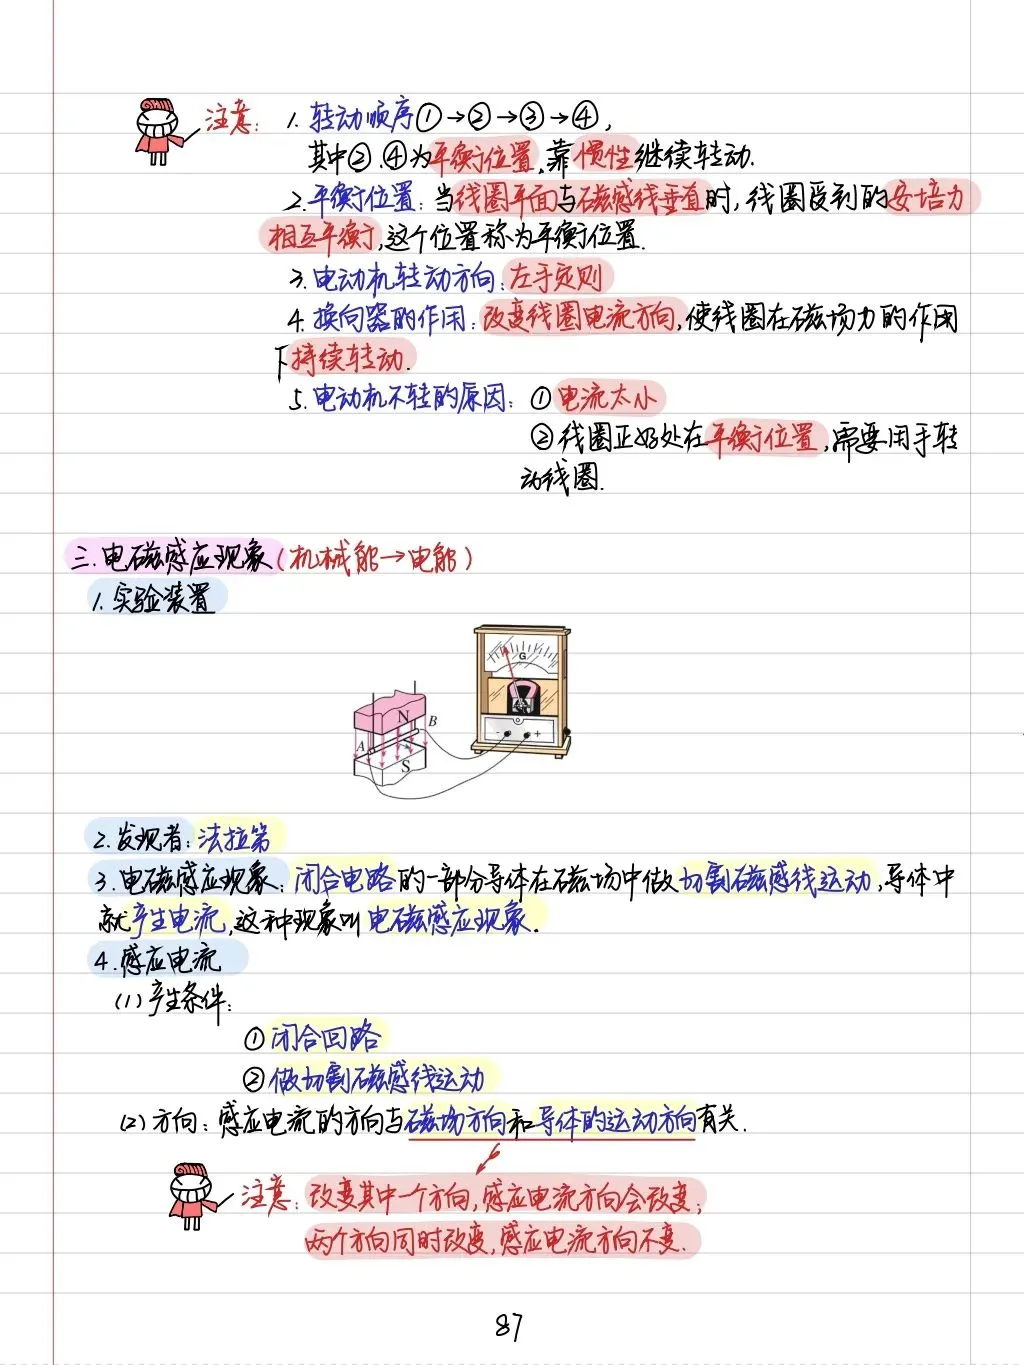 注意: 1. 转动顺序①→②→③→④,
其中②.④为平衡位置,靠惯性继续转动.
2.平衡位置:当线圈平面与磁感线垂直时,线圈受到的安培力
相互平衡,这个位置称为平衡位置.
3.电动机转动方向:左手定则
4.换向器的作用:改变线圈电流方向,使线圈在磁场力的作用
下持续转动.
5.电动机不转的原因:①电流太小
②线圈正好处在平衡位置,需要用手转
动线圈.
三.电磁感应现象(机械能→电能)
1.实验装置
G
N
B
A
S
- +
2.发现者:法拉第
3.电磁感应现象:闭合电路的一部分导体在磁场中做切割磁感线运动,导体中
就产生电流,这种现象叫电磁感应现象.
4.感应电流
(1)产生条件:
①闭合回路
②做切割磁感线运动
(2)方向:感应电流的方向与磁场方向和导体的运动方向有关.
注意:改变其中一个方向,感应电流方向会改变;
两个方向同时改变,感应电流方向不变.
87